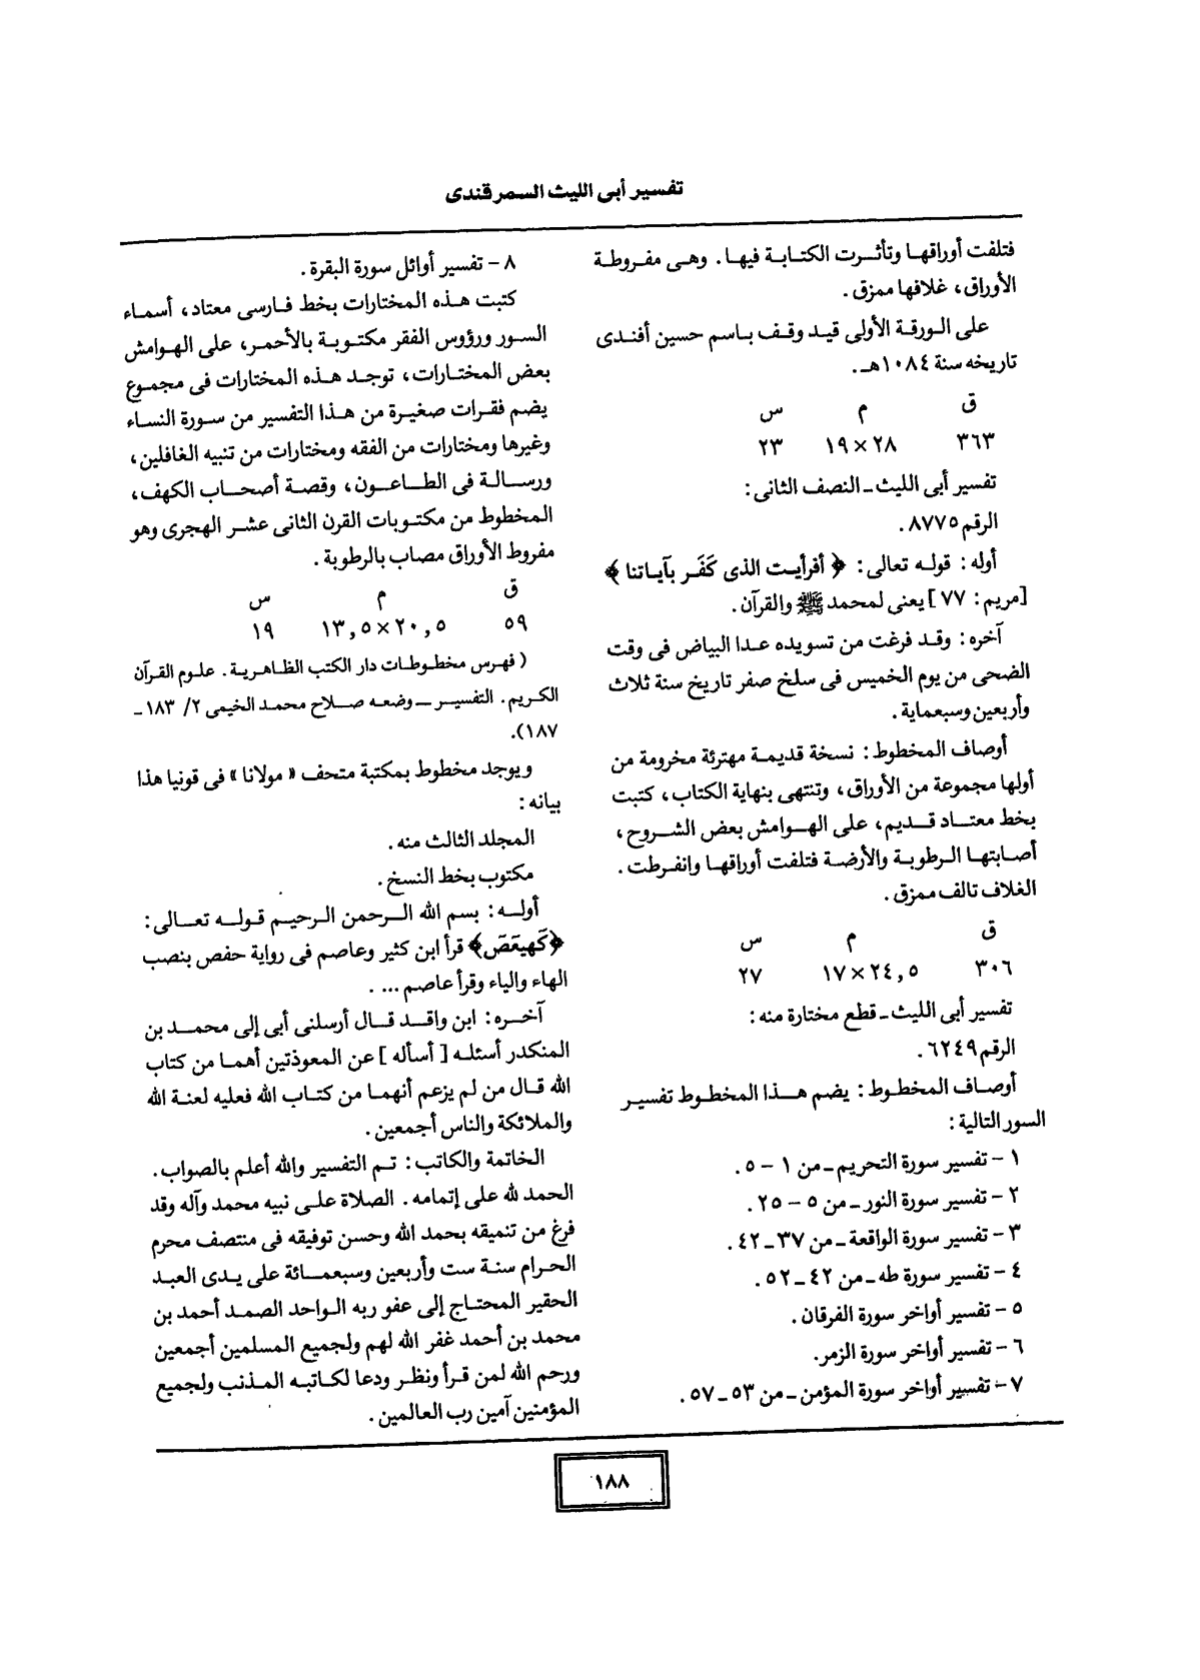 تفسير أبى الليث السمرقندى
فتلفت أوراقها وتأثرت الكتابة فيها. وهى مفروطة
الأوراق، غلافها ممزق.
على الورقة الأولى قيد وقف باسم حسين أفندى
تاريخه سنة ١٠٨٤هـ.
ق م س
٣٦٣ ٢٨×١٩ ٢٣
تفسير أبى الليث ـ النصف الثانى:
الرقم ٨٧٧٥.
أوله: قوله تعالى: ﴿ أفرأيت الذى كَفَر بآياتنا ﴾
[مريم: ٧٧] يعنى لمحمد ﷺ والقرآن.
آخره: وقد فرغت من تسويده عدا البياض فى وقت
الضحى من يوم الخميس فى سلخ صفر تاريخ سنة ثلاث
وأربعين وسبعماية.
أوصاف المخطوط: نسخة قديمة مهترئة مخرومة من
أولها مجموعة من الأوراق، وتنتهى بنهاية الكتاب، كتبت
بخط معتاد قديم، على الهوامش بعض الشروح،
أصابتها الرطوبة والأرضة فتلفت أوراقها وانفرطت.
الغلاف تالف ممزق.
ق م س
٣٠٦ ٢٤,٥×١٧ ٢٧
تفسير أبى الليث ـ قطع مختارة منه:
الرقم ٦٢٤٩.
أوصاف المخطوط: يضم هذا المخطوط تفسير
السور التالية:
١ – تفسير سورة التحريم ـ من ١ – ٥.
٢ – تفسير سورة النور ـ من ٥ – ٢٥.
٣ – تفسير سورة الواقعة ـ من ٣٧ ـ ٤٢.
٤ – تفسير سورة طه ـ من ٤٢ ـ ٥٢.
٥ – تفسير أواخر سورة الفرقان.
٦ – تفسير أواخر سورة الزمر.
٧ – تفسير أواخر سورة المؤمن ـ من ٥٣ ـ ٥٧.
٨ – تفسير أوائل سورة البقرة.
كتبت هذه المختارات بخط فارسى معتاد، أسماء
السور ورؤوس الفقر مكتوبة بالأحمر، على الهوامش
بعض المختارات، توجد هذه المختارات فى مجموع
يضم فقرات صغيرة من هذا التفسير من سورة النساء
وغيرها ومختارات من الفقه ومختارات من تنبيه الغافلين،
ورسالة فى الطاعون، وقصة أصحاب الكهف،
المخطوط من مكتوبات القرن الثانى عشر الهجرى وهو
مفروط الأوراق مصاب بالرطوبة.
ق م س
٥٩ ٢٠,٥×١٣,٥ ١٩
( فهرس مخطوطات دار الكتب الظاهرية. علوم القرآن
الكريم. التفسير ــ وضعه صلاح محمد الخيمى ٢/ ١٨٣ ـ
١٨٧).
ويوجد مخطوط بمكتبة متحف « مولانا » فى قونيا هذا
بيانه:
المجلد الثالث منه.
مكتوب بخط النسخ.
أوله: بسم الله الرحمن الرحيم قوله تعالى:
﴿كَهيعَصَ﴾ قرأ ابن كثير وعاصم فى رواية حفص بنصب
الهاء والياء وقرأ عاصم ... .
آخره: ابن واقد قال أرسلنى أبى إلى محمد بن
المنكدر أسئله [ أسأله ] عن المعوذتين أهما من كتاب
الله قال من لم يزعم أنهما من كتاب الله فعليه لعنة الله
والملائكة والناس أجمعين.
الخاتمة والكاتب: تم التفسير والله أعلم بالصواب.
الحمد لله على إتمامه. الصلاة على نبيه محمد وآله وقد
فرغ من تنميقه بحمد الله وحسن توفيقه فى منتصف محرم
الحرام سنة ست وأربعين وسبعمائة على يدى العبد
الحقير المحتاج إلى عفو ربه الواحد الصمد أحمد بن
محمد بن أحمد غفر الله لهم ولجميع المسلمين أجمعين
ورحم الله لمن قرأ ونظر ودعا لكاتبه المذنب ولجميع
المؤمنين آمين رب العالمين.
١٨٨